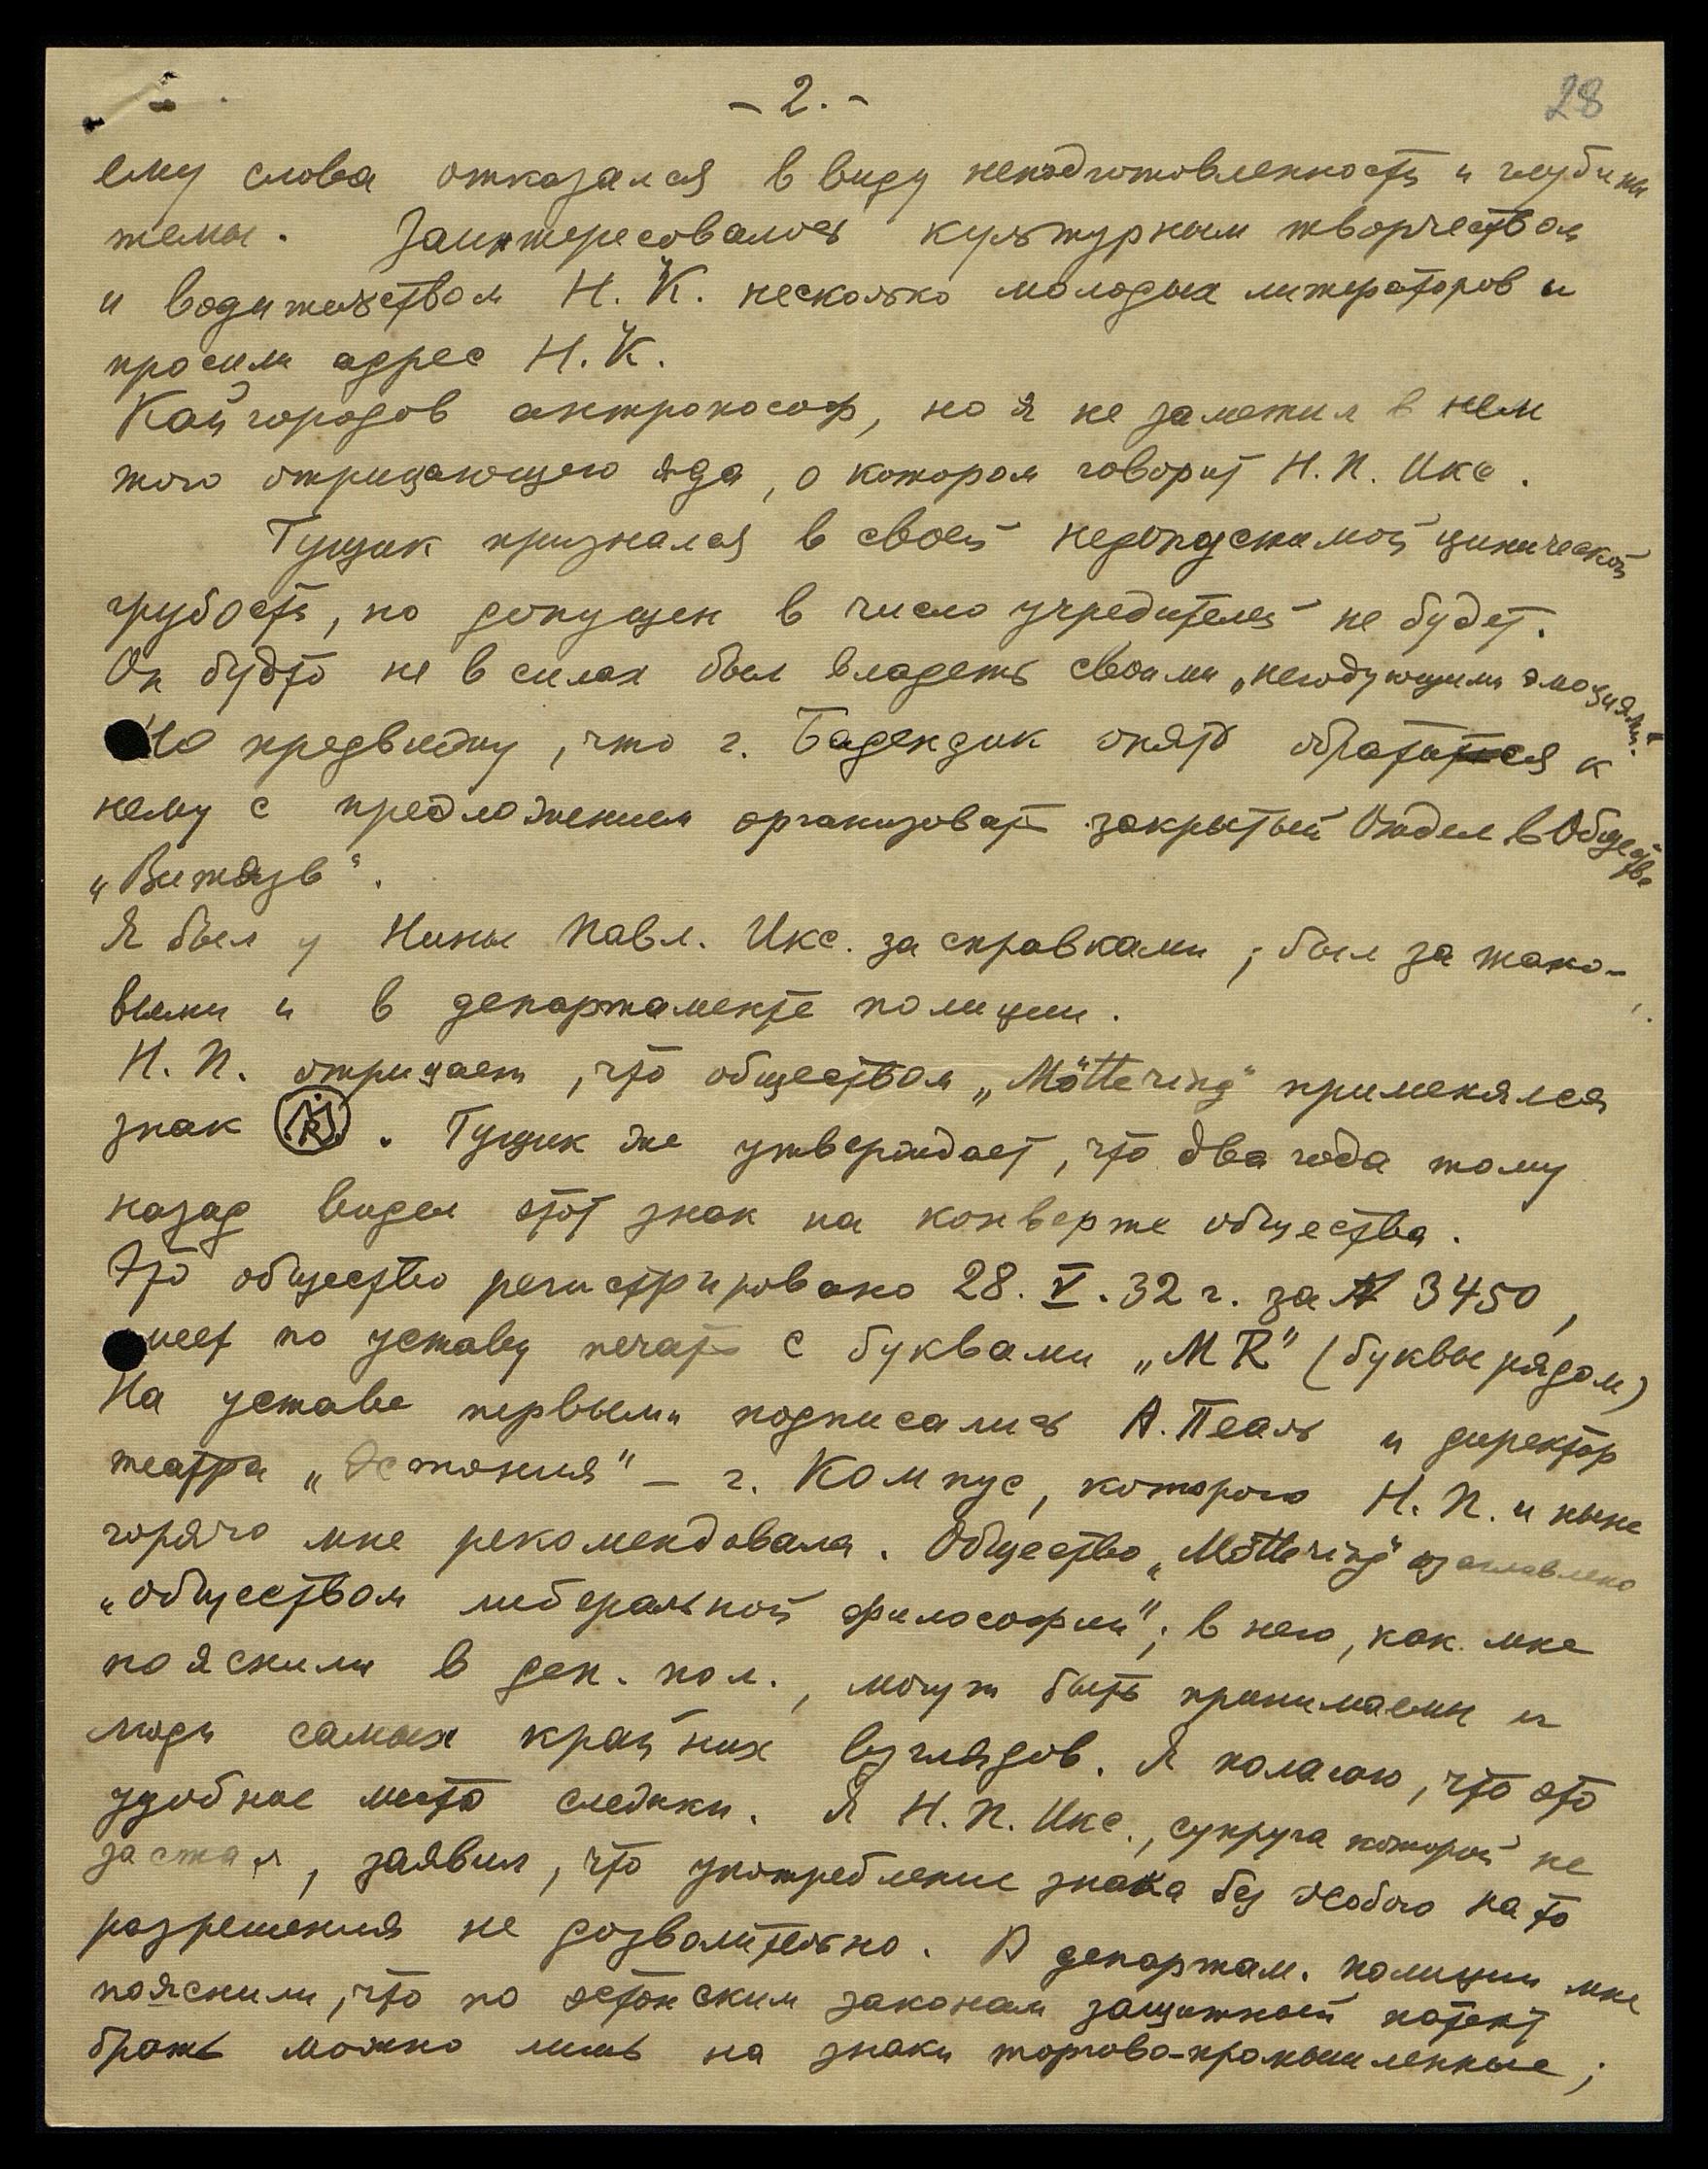 - 2. -
28
ему слова отказался в виду неподготовленности и глубины
темы. Заинтересовались культурным творчеством
и водительством Н. К. несколько молодых литераторов и
просили адрес Н. К.
Кайгородов антропософ, но я не заметил в нем
того отрицающего яда, о котором говорит Н. П. Икс.
Гущик признался в своей недопустимой цинической
грубости, но допущен в число учредителей не будет.
Он будто не в силах был владеть своими „негодующими эмоциями".
предвижу, что г. Бадендик опять обратится к
нему с предложением организовать закрытый Отдел в Обществе
„Витязь".
Я был у Нины Павл. Икс. за справками; был за тако-
выми и в департаменте полиции.
Н. П. отрицает, что обществом „Mõttering" применялся
знак . Гущик же утверждает, что два года тому
назад видел этот знак на конверте общества.
Это общество регистрировано 28. V. 32 г. за № 3450,
имеет по уставу печать с буквами „MR" (буквы рядом)
На уставе первыми подписались А. Пеаль и директор
театра „Эстония" – г. Компус, которого Н. П. и ныне
горячо мне рекомендовала. Общество „Mõttering" озаглавлено
„обществом либеральной философии"; в него, как мне
пояснили в деп. пол., могут быть принимаемы и
люди самых крайних взглядов. Я полагаю, что это
удобное место слежки. Я Н. П. Икс., супруга которой не
застал, заявил, что употребление знака без особого на то
разрешения не дозволительно. В департам. полиции мне
пояснили, что по эстонским законам защитный патент
брать можно лишь на знаки торгово-промышленные;